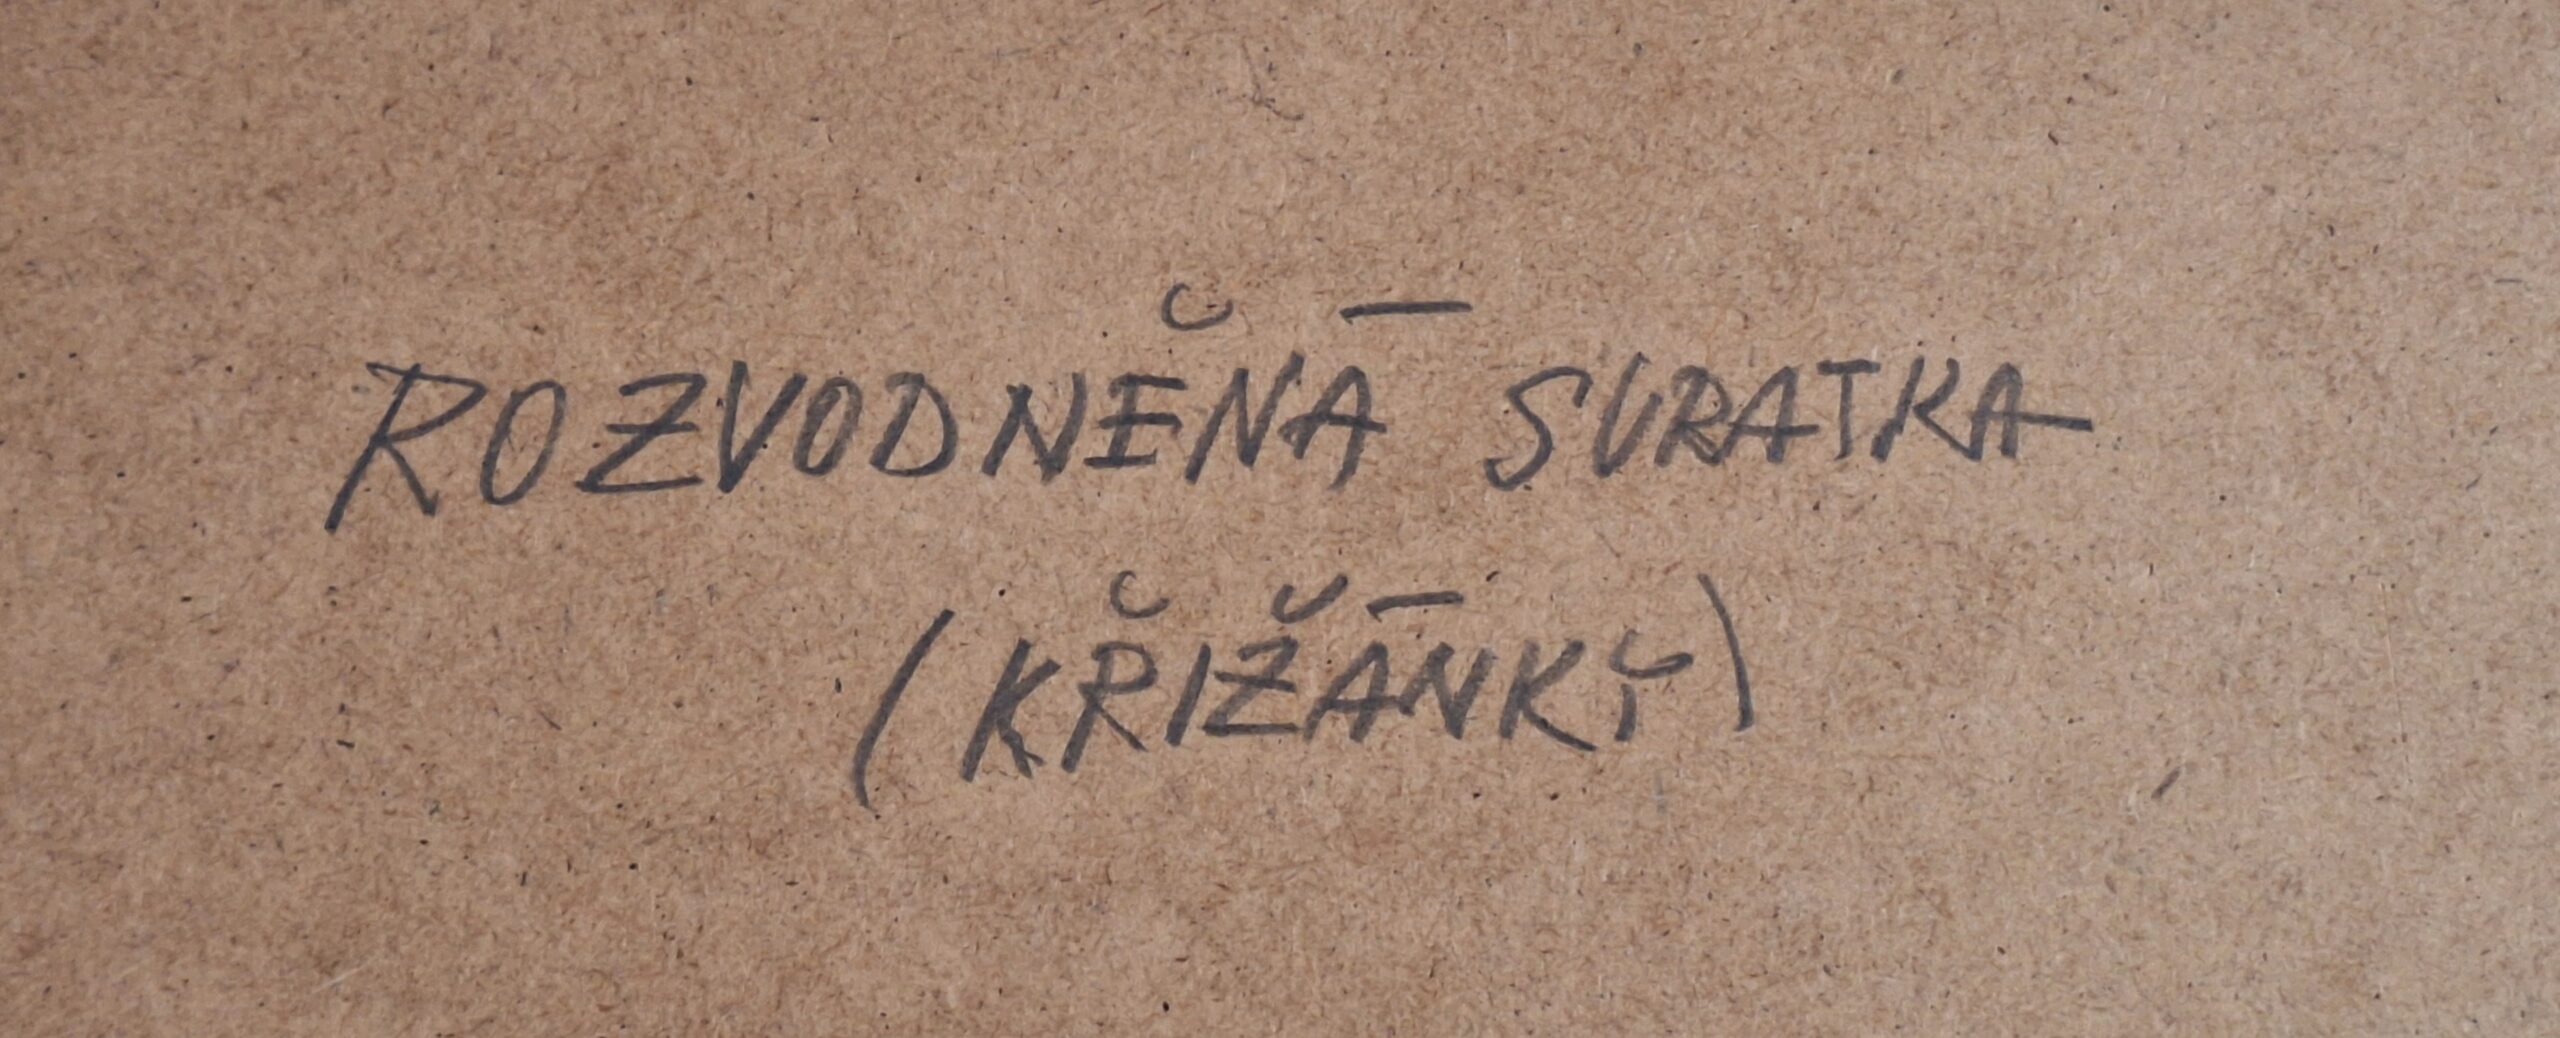 ROZVODNĚNÁ SVRATKA
(KŘIŽÁNKY)